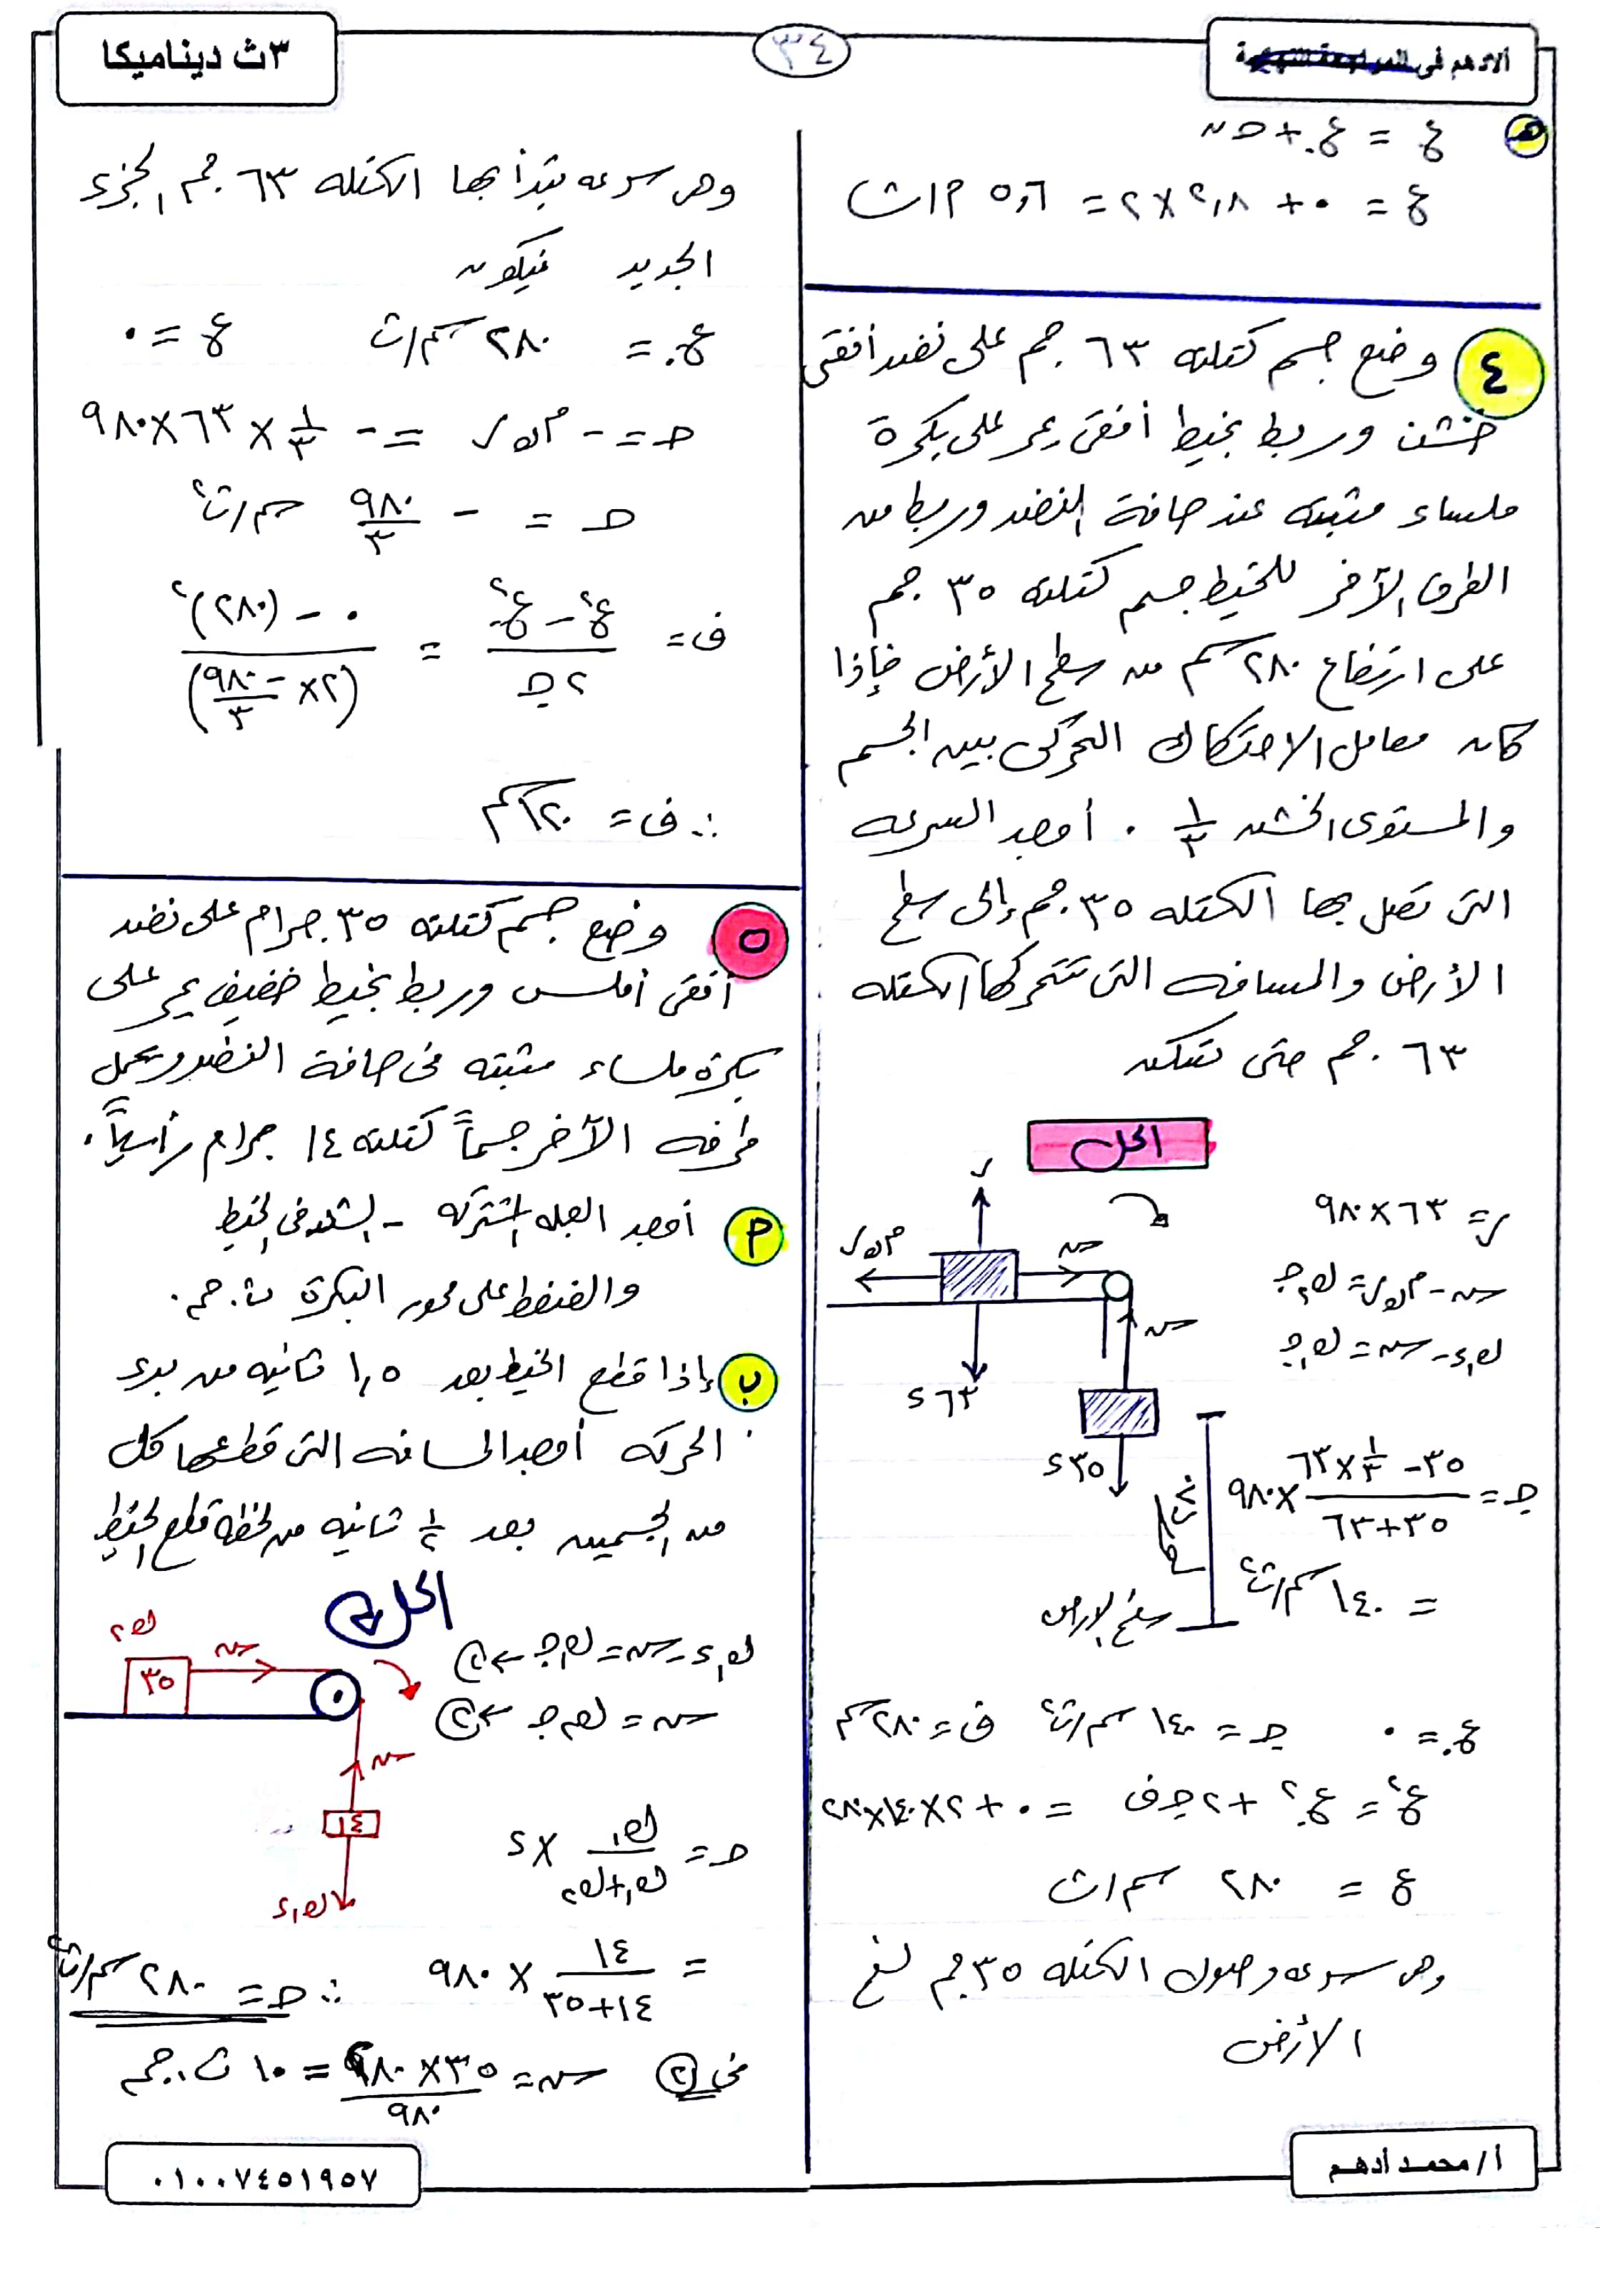 الأدهم فى المراجعة النهائية
٣٤
٣ث ديناميكا
هـ ع = ع. + حـ ن
ع = ٠ + ٢٫٨ × ٢ = ٥٫٦ م/ث
٤ وضع جسم كتلته ٦٣ جم على نضد أفقى
خشن وربط بخيط أفقى يمر على بكرة
ملساء مثبته عند حافة النضد وربط من
الطرف الآخر للخيط جسم كتلته ٣٥ جم
على ارتفاع ٢٨٠ سم من سطح الأرض فإذا
كان معامل الاحتكاك الحركى بين الجسم
والمستوى الخشن ١/٣ . أوجد السرعه
التى تصل بها الكتله ٣٥ جم إلى سطح
الأرض والمسافه التى تتحركها الكتله
٦٣ جم حتى تسكن
الحل
ر
ر = ٦٣ × ٩٨٠
م ك ر
شـ
شـ - م ك ر = ك٢ جـ
شـ
ك١ ء - شـ = ك١ جـ
٦٣ ء
٣٥ ء
جـ = (٣٥ - ١/٣ × ٦٣)/(٣٥ + ٦٣) × ٩٨٠
= ١٤٠ سم/ث٢
٢٨٠ سم
سطح الأرض
ع. = ٠ جـ = ١٤٠ سم/ث٢ ف = ٢٨٠ سم
ع٢ = ع.٢ + ٢ جـ ف = ٠ + ٢ × ١٤٠ × ٢٨٠
ع = ٢٨٠ سم/ث
وهى سرعه وصول الكتله ٣٥ جم لسطح
الأرض
وهى سرعه تبدأ بها الكتله ٦٣ جم الجزء
الجديد فيكون
ع. = ٢٨٠ سم/ث ع = ٠
حـ = - م ك ر = - ١/٣ × ٦٣ × ٩٨٠
حـ = - ٩٨٠/٣ سم/ث٢
ف = (ع٢ - ع.٢)/(٢ جـ) = (٠ - (٢٨٠)٢)/(٢ × - ٩٨٠/٣)
∴ ف = ١٢٠ سم
٥ وضع جسم كتلته ٣٥ جرام على نضد
أفقى أملس وربط بخيط خفيف يمر على
بكرة ملساء مثبته فى حافة النضد ويحمل
طرفه الآخر جسماً كتلته ١٤ جرام رأسياً.
م أوجد العجله المشتركه - الشد فى الخيط
والضغط على محور البكرة ث. جم.
ب إذا قطع الخيط بعد ١٫٥ ثانيه من بدء
الحركه أوجد المسافه التى قطعها كل
من الجسمين بعد ١/٢ ثانيه من لحظه قطع الخيط
الحل
ك٢
٣٥
شـ
ك١ ء - شـ = ك١ جـ ← ١
شـ = ك٢ جـ ← ٢
شـ
١٤
ك١ ء
حـ = ك١/(ك١ + ك٢) × ء
= ١٤/(١٤ + ٣٥) × ٩٨٠ ∴ حـ = ٢٨٠ سم/ث٢
فى ٢ شـ = (٣٥ × ٢٨٠)/٩٨٠ = ١٠ ث. جم
أ/ محمد أدهم
٠١٠٠٧٤٥١٩٥٧